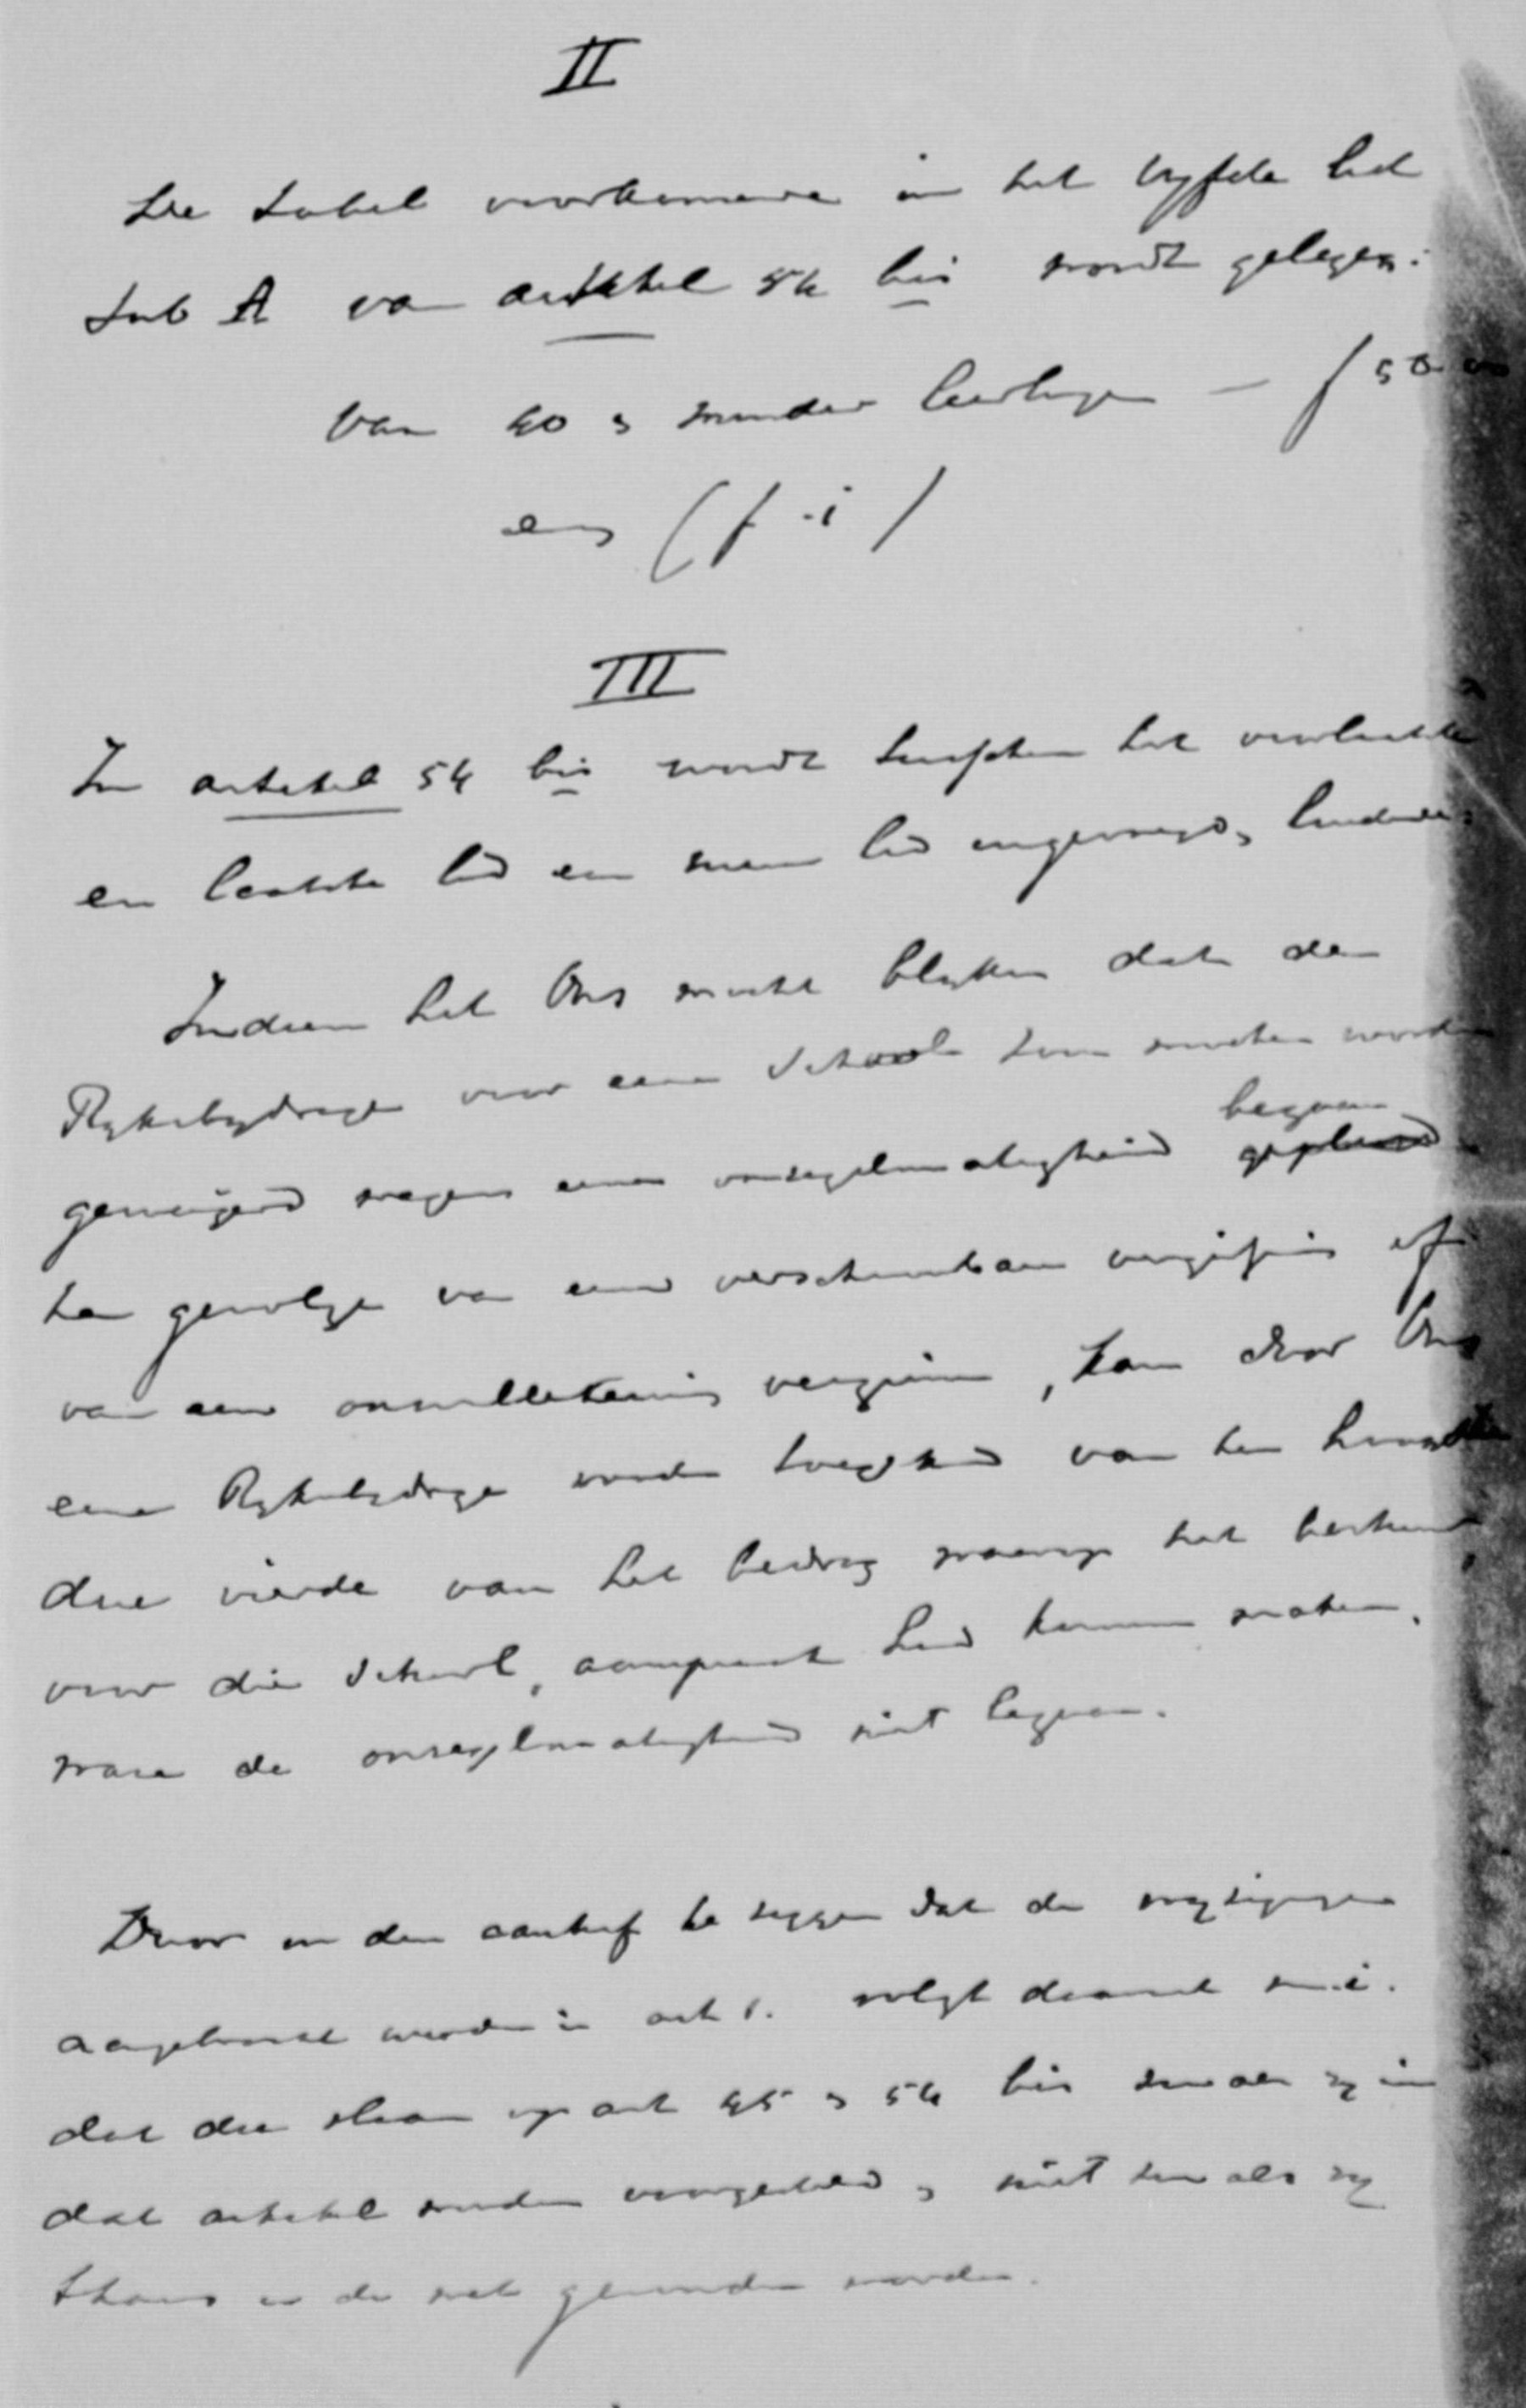 II
De tabel voorkomende in het vyfde lid
sub A van artikel 54 bis wordt gelezen:
Van 40 & minder leerlingen — f 50
enz (f. i)
III
In artikel 54 bis wordt tusschen het voorlaatste
en laatste lid een nieuw lid ingevoegd, luidende:
Indien het Ons mocht blyken dat de
Ryksbydrage voor eene School zou moeten worden
geweigerd wegens eene onregelmatigheid begaan
ten gevolge van eene verschoonbare vergissing of
van een onwillekeurig verzuim, kan door Ons
eene Ryksbydrage worden toegekend van ten hoogste
drie vierde van het bedrag waarop het bestuur
voor die School, aanspraak had kunnen maken,
ware de onregelmatigheid niet begaan.
Door in den aanhef te zeggen dat de wyzigingen
aangebracht worden in art 1. volgt daaruit m.i.
dat die slaan op art 45 & 54 bis zooals zy in
dat artikel worden voorgesteld, & niet zooals zy
thans in de wet gevonden worden.